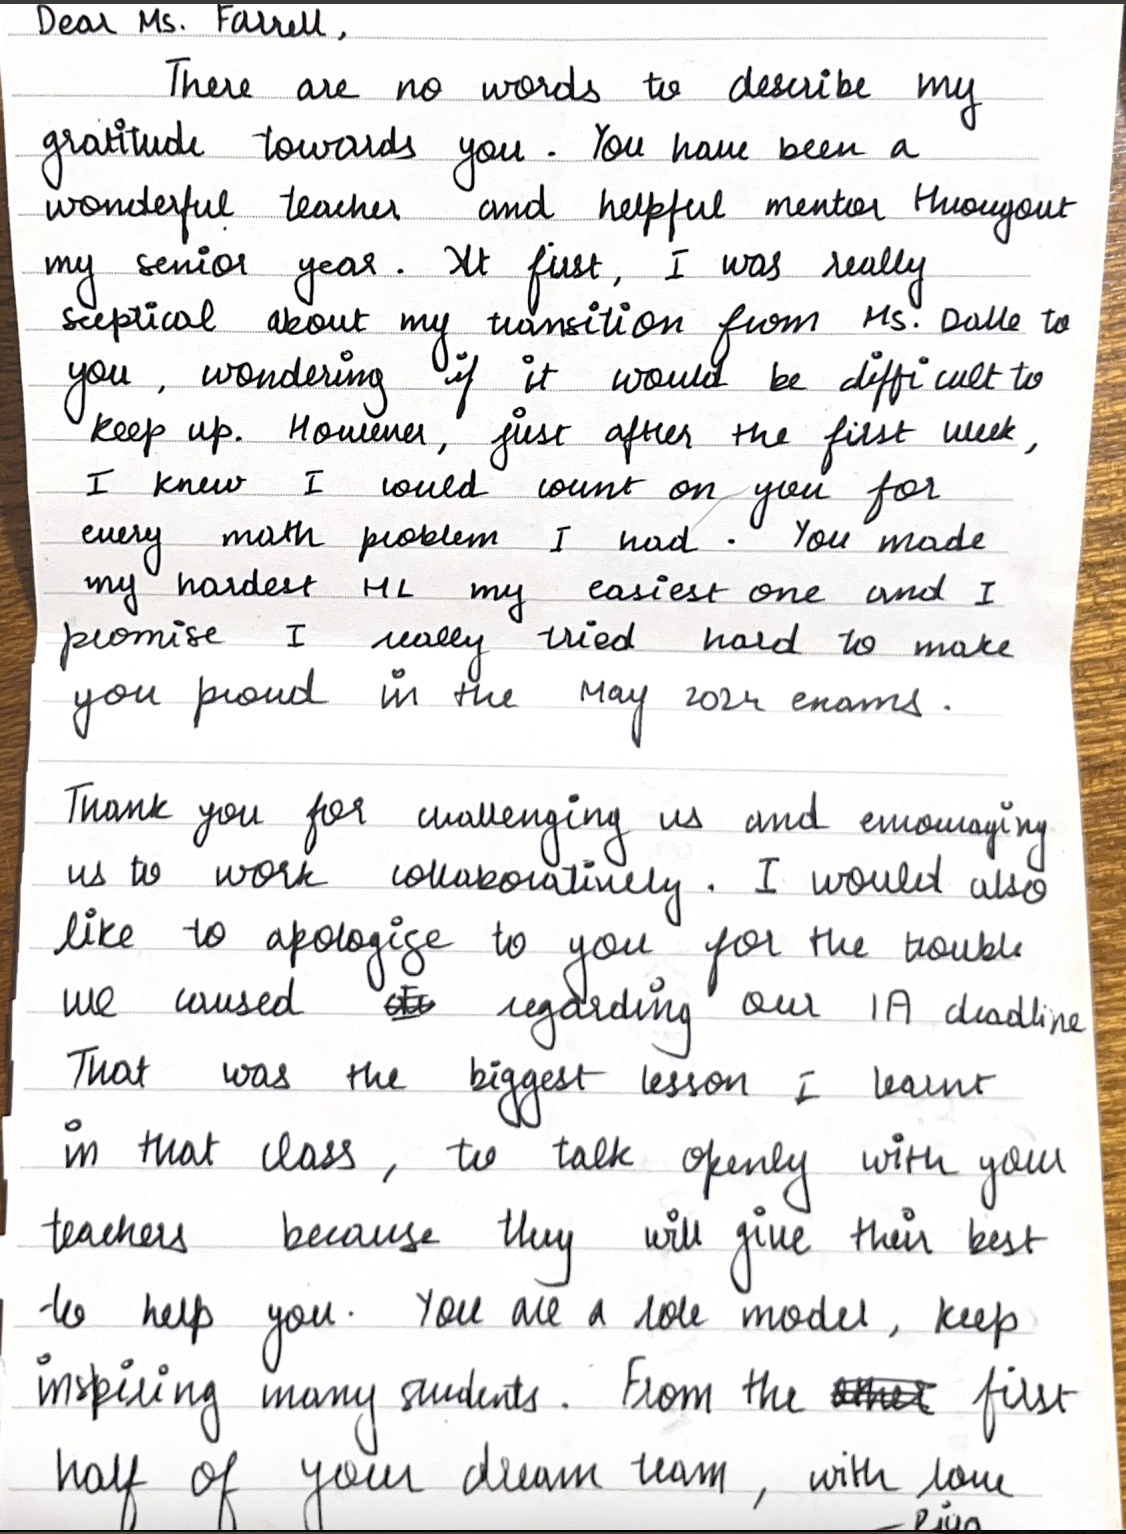 Dear Ms. Farrell,
There are no words to describe my
gratitude towards you. You have been a
wonderful teacher and helpful mentor throughout
my senior year. At first, I was really
sceptical about my transition from Ms. Dalle to
you, wondering if it would be difficult to
keep up. However, just after the first week,
I knew I could count on you for
every math problem I had. You made
my hardest HL my easiest one and I
promise I really tried hard to make
you proud in the May 2024 exams.
Thank you for challenging us and encouraging
us to work collaboratively. I would also
like to apologise to you for the trouble
we caused regarding our IA deadline
That was the biggest lesson I learnt
in that class, to talk openly with your
teachers because they will give their best
to help you. You are a role model, keep
inspiring many students. From the first
half of your dream team, with love